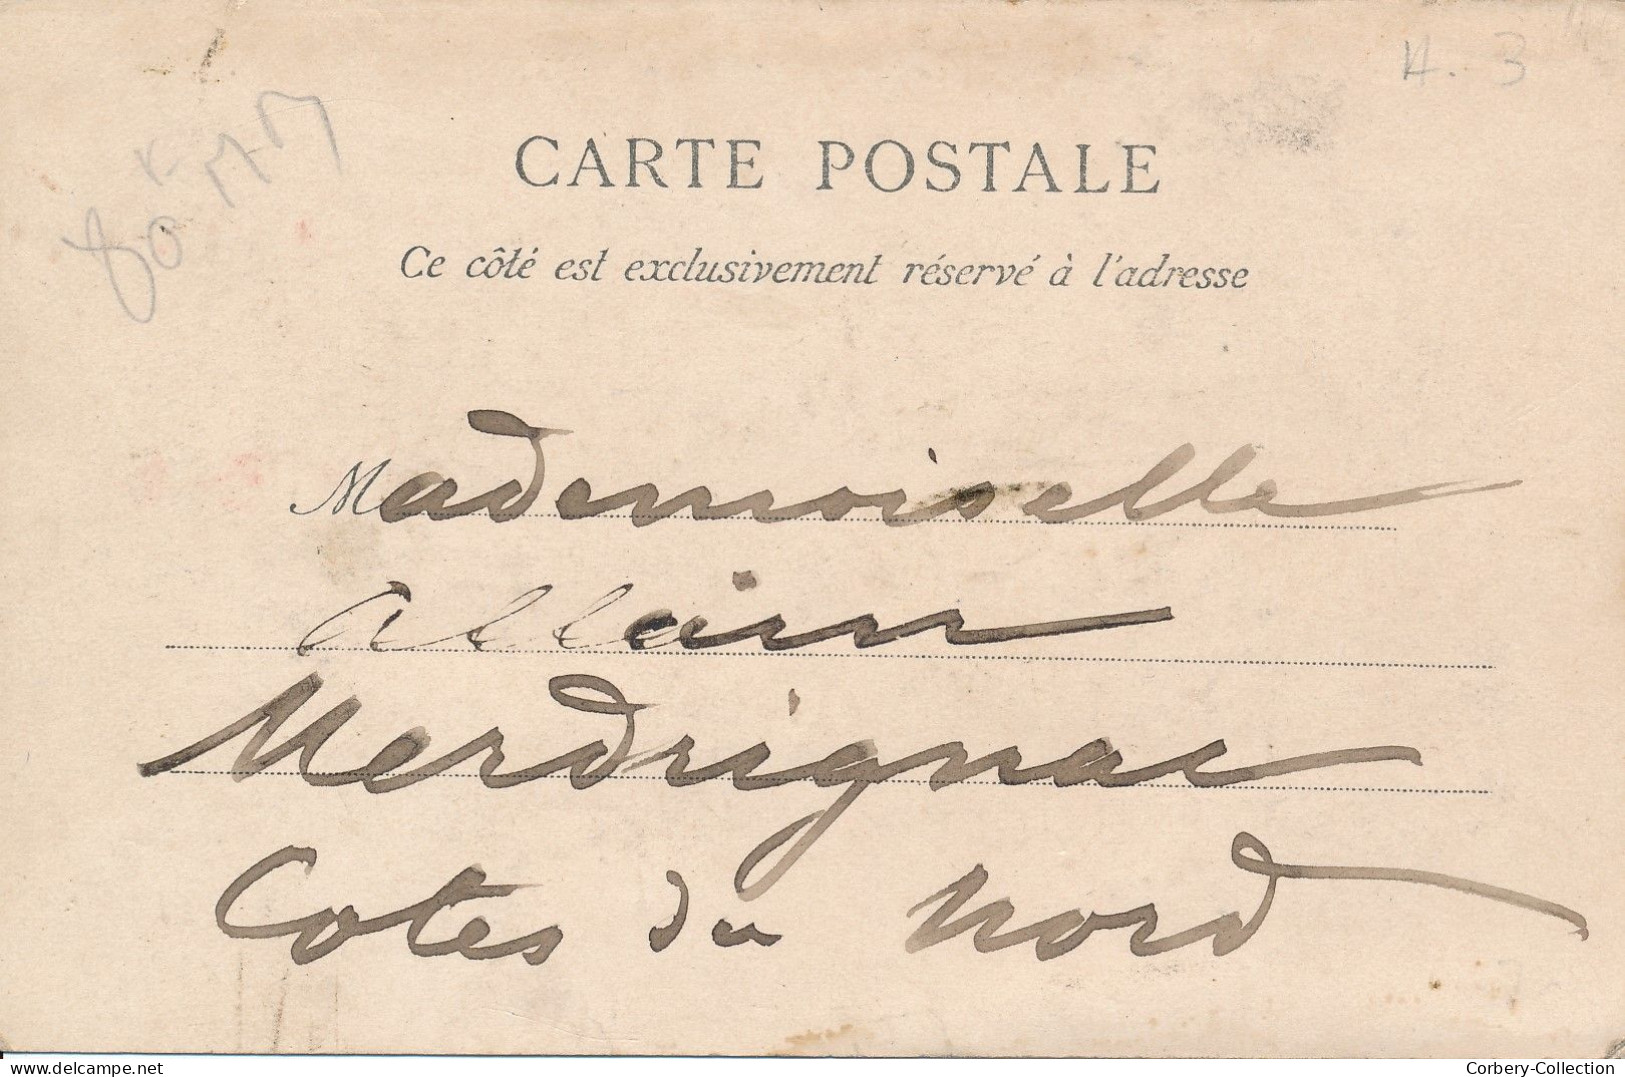 H. 3
CARTE POSTALE
Ce côté est exclusivement réservé à l'adresse
Mademoiselle
Allain
Merdrignac
Cotes du Nord
delcampe.net
Corbery-Collection